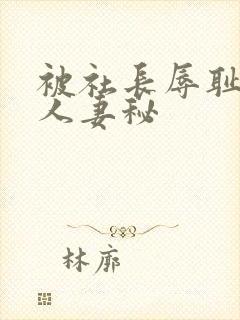 被社長辱恥
人妻秘
林廓